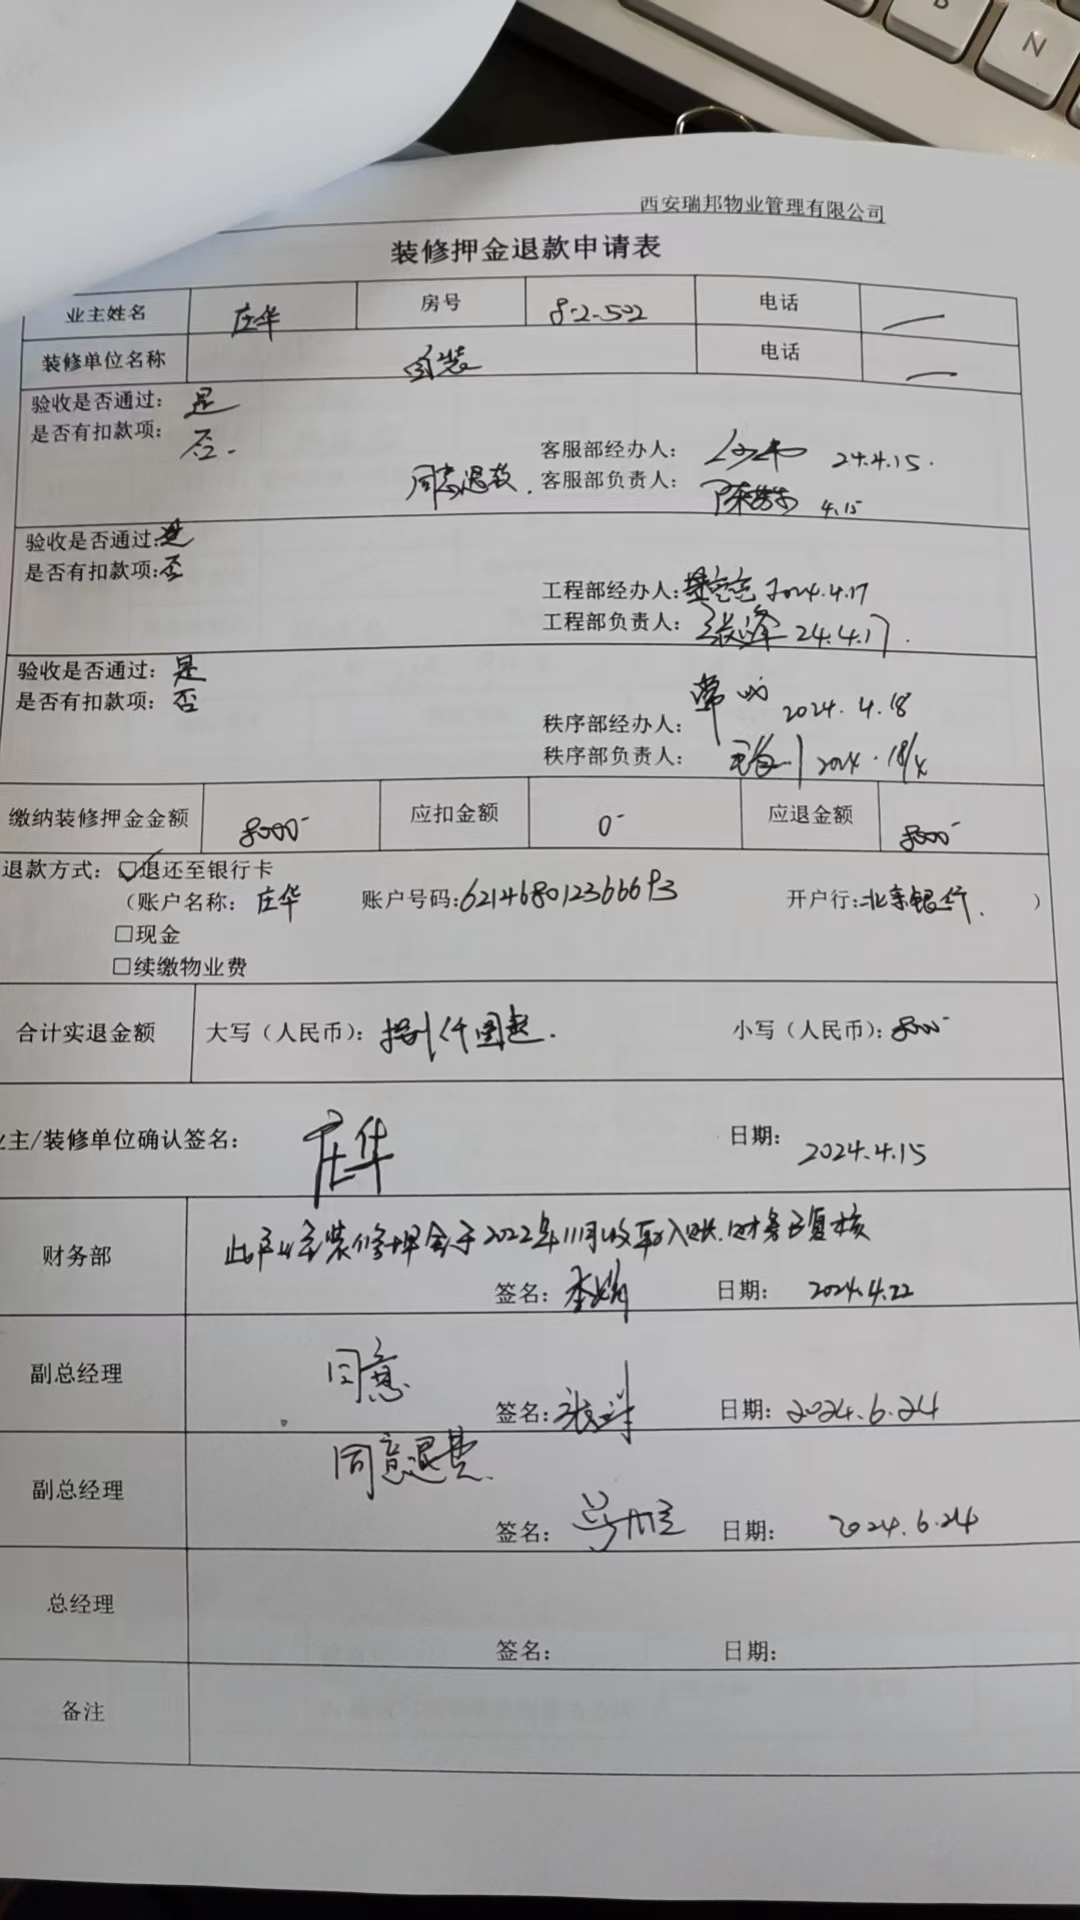 西安瑞邦物业管理有限公司
装修押金退款申请表
业主姓名 庄华 房号 8-2-502 电话 —
装修单位名称 自装 电话 —
验收是否通过: 是
是否有扣款项: 否.
客服部经办人: 24.4.15.
同意退款. 客服部负责人: 4.15
验收是否通过:是
是否有扣款项:否
工程部经办人: 2024.4.17
工程部负责人: 张峰 24.4.17.
验收是否通过: 是
是否有扣款项: 否
秩序部经办人: 2024.4.18
秩序部负责人: 2024.18/4
缴纳装修押金金额 8000- 应扣金额 0- 应退金额 8000-
退款方式: ☑退还至银行卡
(账户名称: 庄华 账户号码:6214680123666893 开户行:北京银行. )
□现金
□续缴物业费
合计实退金额 大写(人民币): 捌仟圆整. 小写(人民币): 8000-
业主/装修单位确认签名: 庄华 日期: 2024.4.15
财务部 此户业主装修押金于2022年11月收取入账.财务已复核
签名: 李娟 日期: 2024.4.22
副总经理 同意
签名: 日期: 2024.6.24
副总经理 同意退费.
签名: 日期: 2024.6.24
总经理
签名: 日期:
备注
B
N